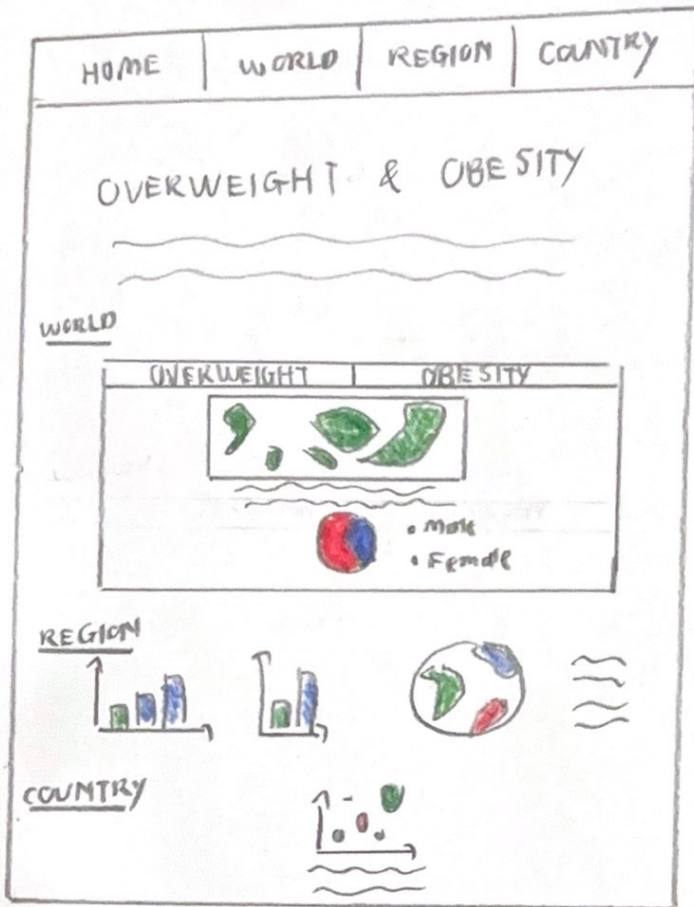 HOME WORLD REGION COUNTRY
OVERWEIGHT & OBESITY
WORLD
OVERWEIGHT OBESITY
• Male
• Female
REGION
COUNTRY